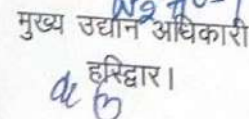 मुख्य उद्यान अधिकारी
हरिद्वार।